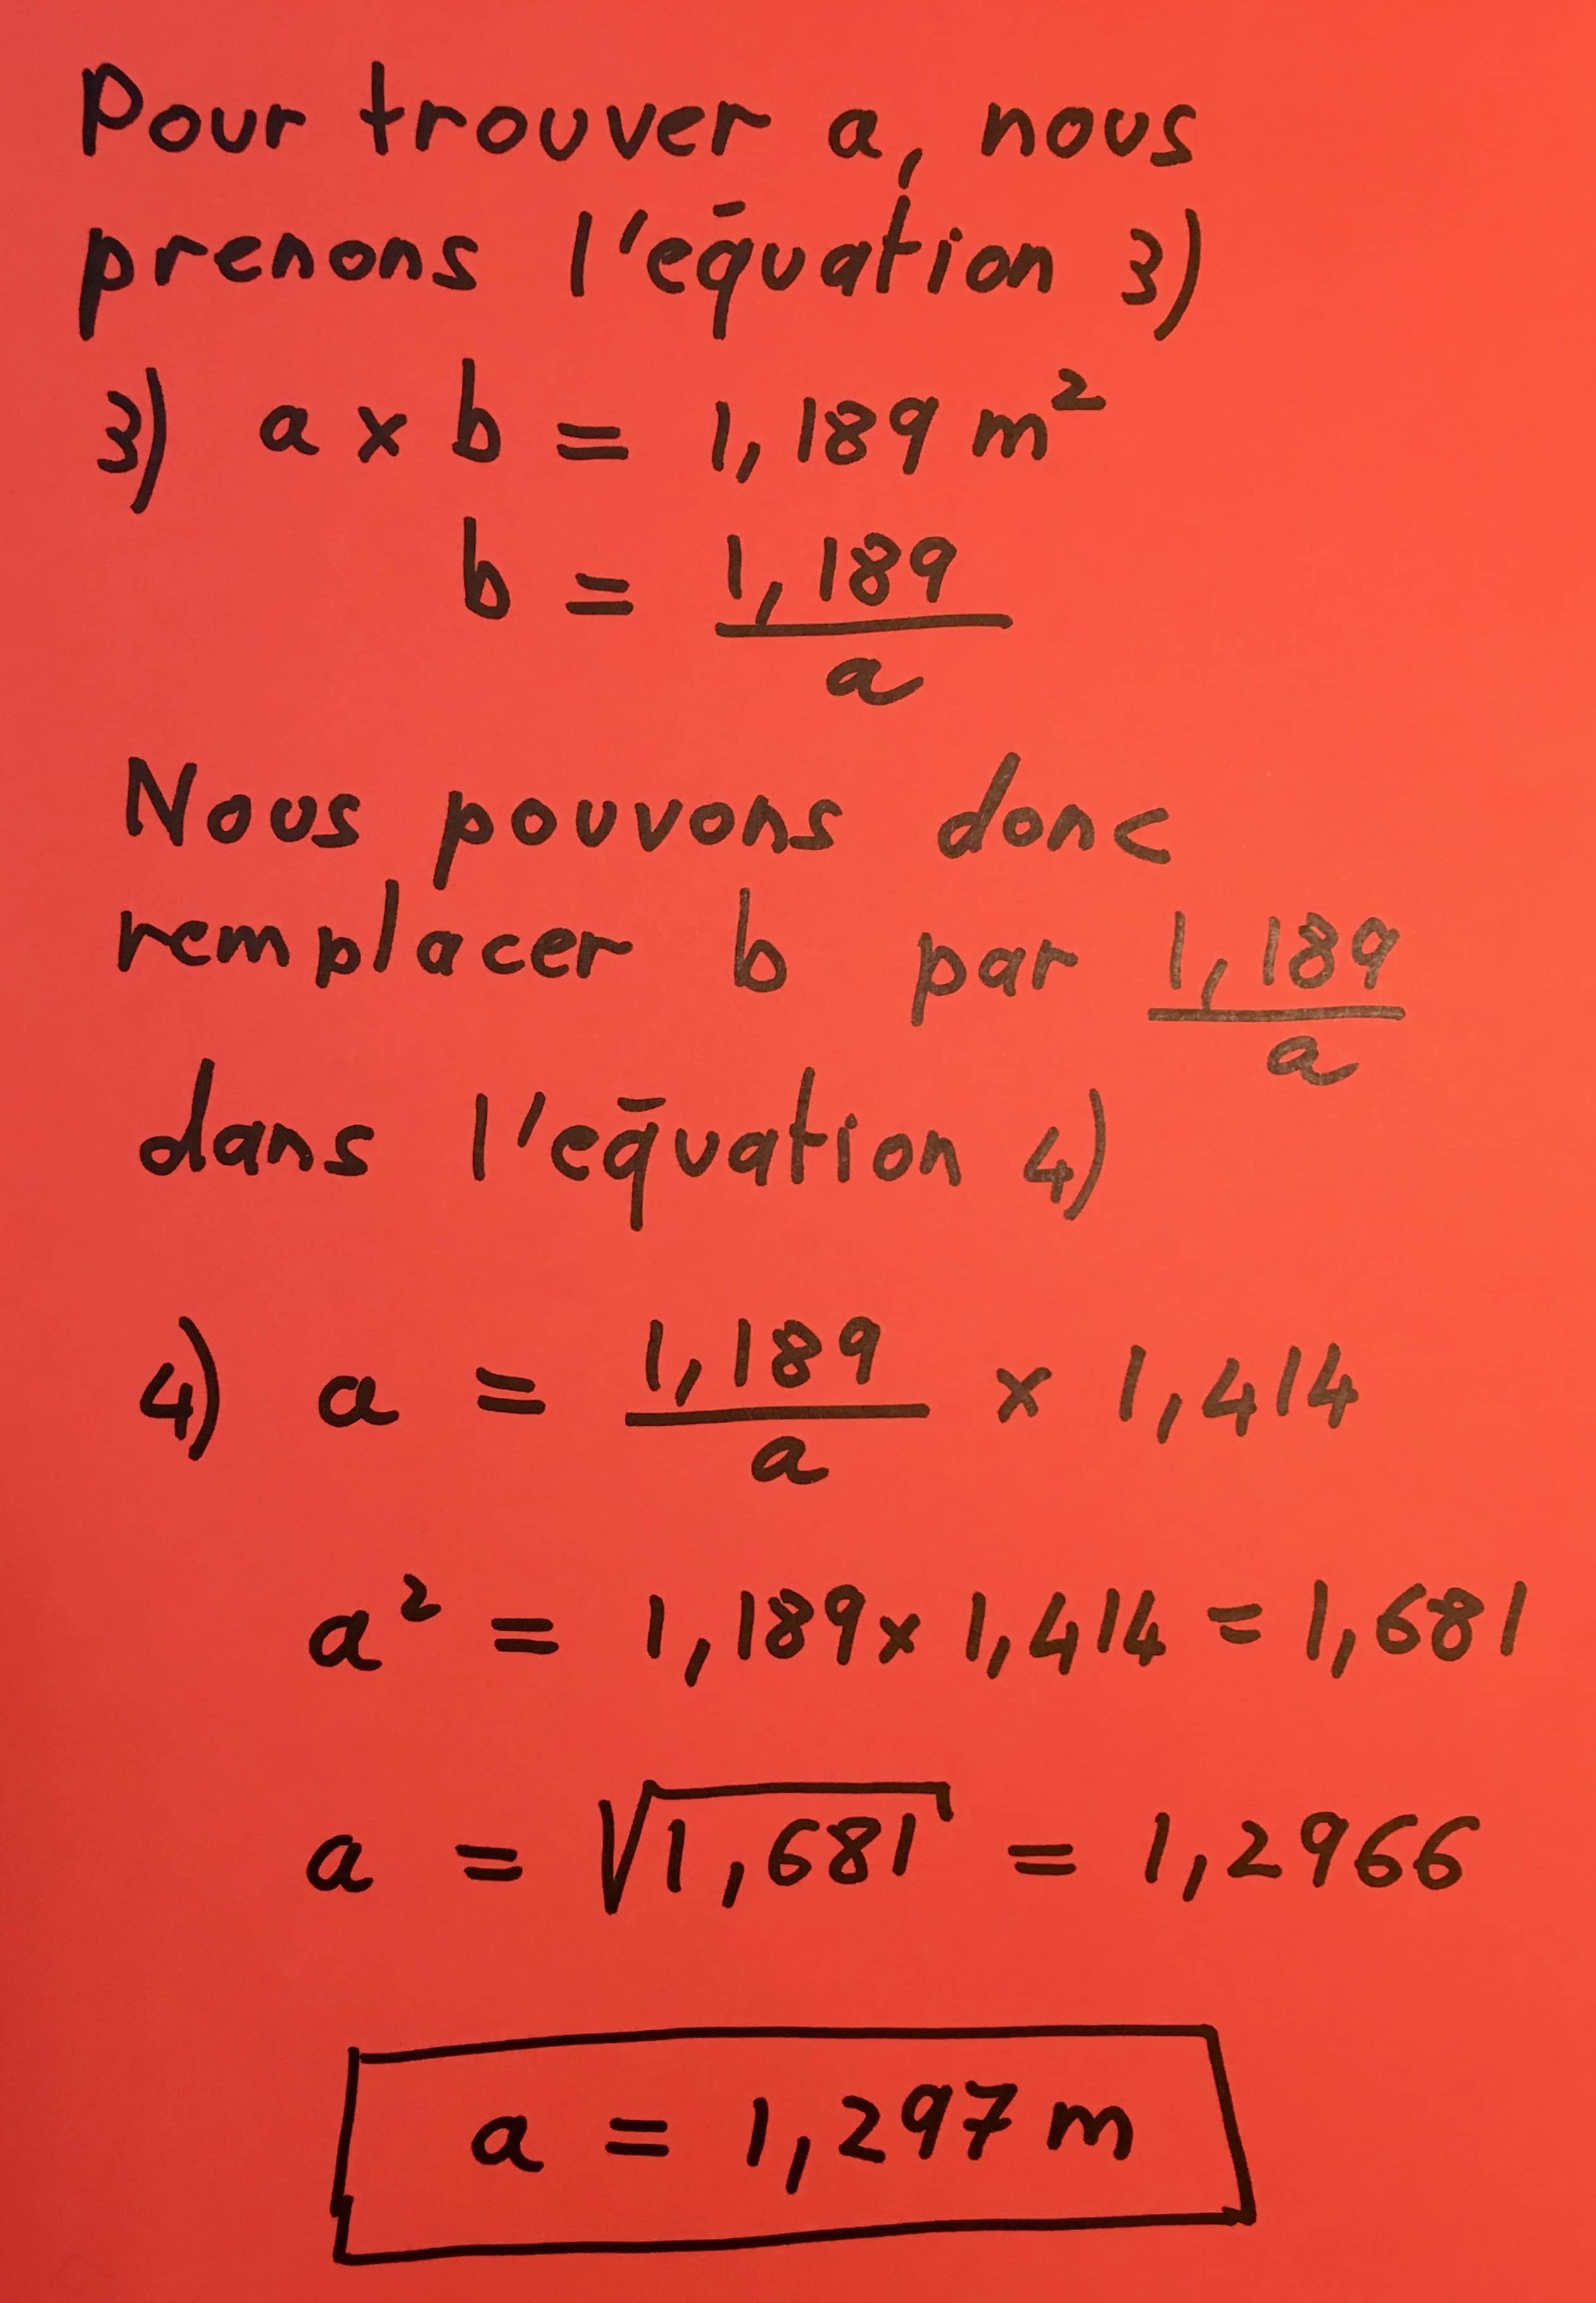 Pour trouver a, nous
prenons l'équation 3)
3) a x b = 1,189 m²
b = 1,189
a
Nous pouvons donc
remplacer b par 1,189
a
dans l'équation 4)
4) a = 1,189 x 1,414
a
a² = 1,189 x 1,414 = 1,681
a = √1,681 = 1,2966
a = 1,297 m